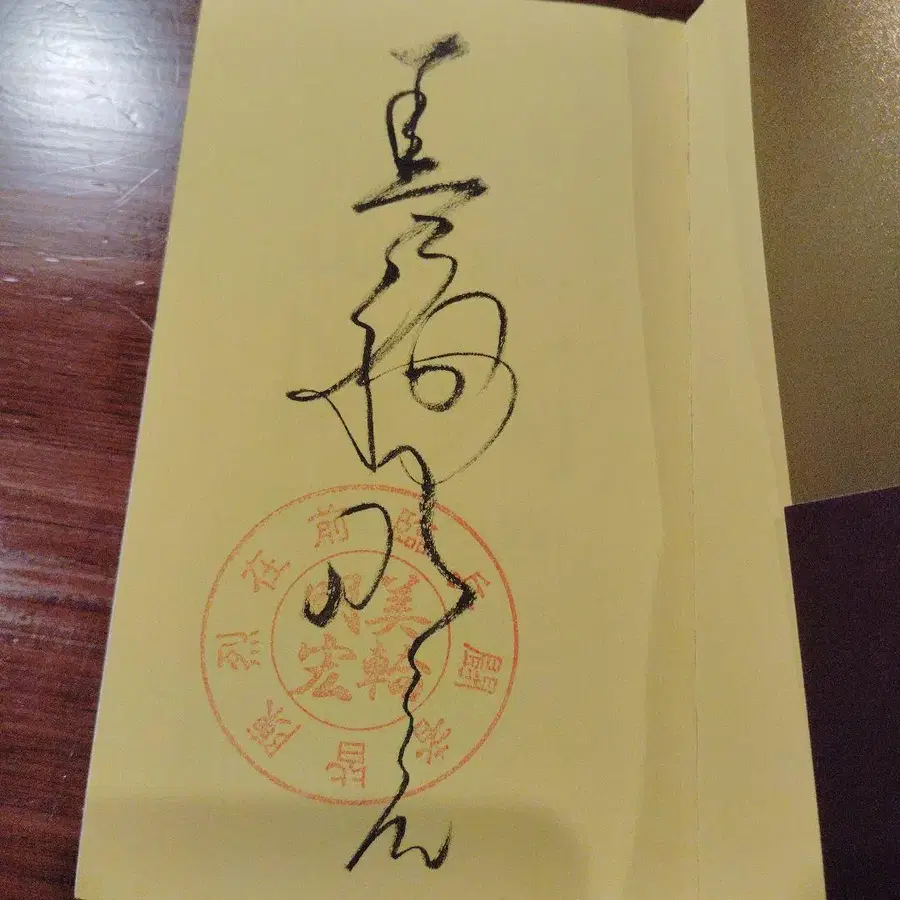 美輪明宏
臨兵闘者皆陳烈在前
美輪
明宏